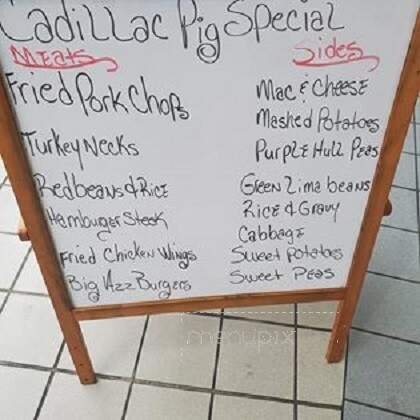 Cadillac Pig Special
Meats
Fried Pork Chops
Turkey Necks
Redbeans & Rice
Hamburger Steak
Fried Chicken Wings
Big Azz Burgers
Sides
Mac & Cheese
Mashed Potatoes
Purple Hull Peas
Green Lima beans
Rice & Gravy
Cabbage
Sweet Potatoes
Sweet Peas
menupix